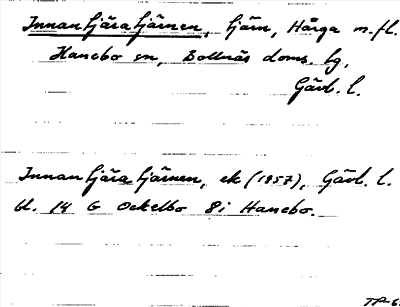 Innantjäratjärnen, tjärn, Hårga m.fl.
Hanebo sn, Bollnäs doms. tg,
Gävl. l.
Innantjäratjärnen, ek (1957), Gävl. l.
bl. 14 G Ockelbo 8i Hanebo.